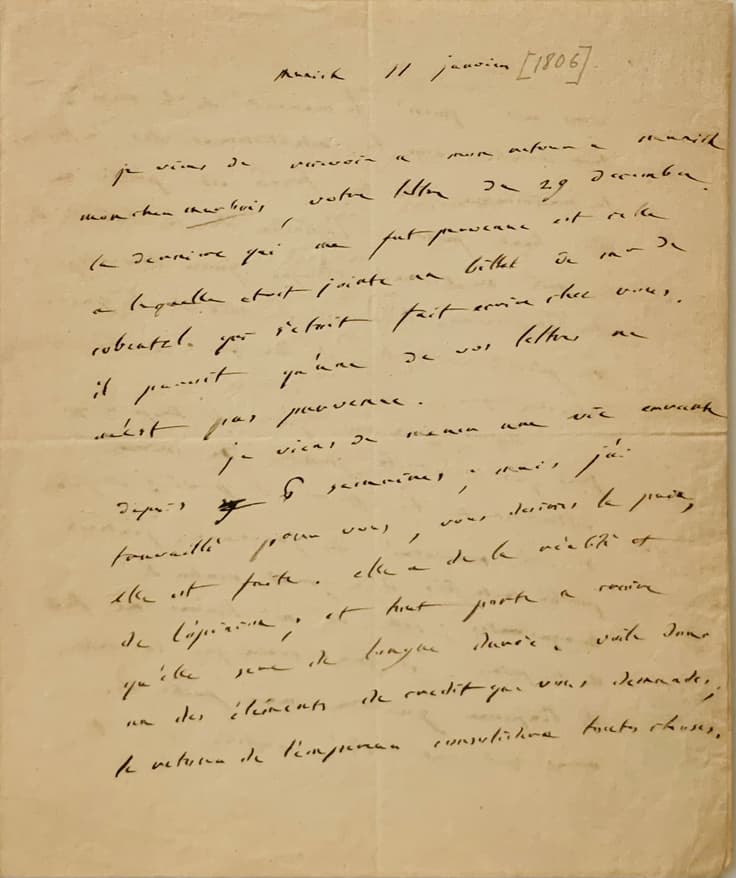 Munich 11 janvier [1806].
je viens de recevoir a mon retour a munich
mon cher marbois, votre lettre du 29 decembre.
la derniere qui me fut parvenue est celle
a laquelle etoit jointe un billet de mr de
cobentzel qui s'etoit fait ecrire chez vous.
il paroit qu'une de vos lettres ne
m'est pas parvenue.
je viens de mener une vie errante
depuis 6 semaines, mais j'ai
travaillé pour vous, vous desiriez la paix,
elle est faite. elle a de la réalité et
de l'opinion, et tout porte a croire
qu'elle sera de longue durée. voila donc
un des éléments de credit que vous demandez,
le retour de l'empereur consolidera toutes choses.